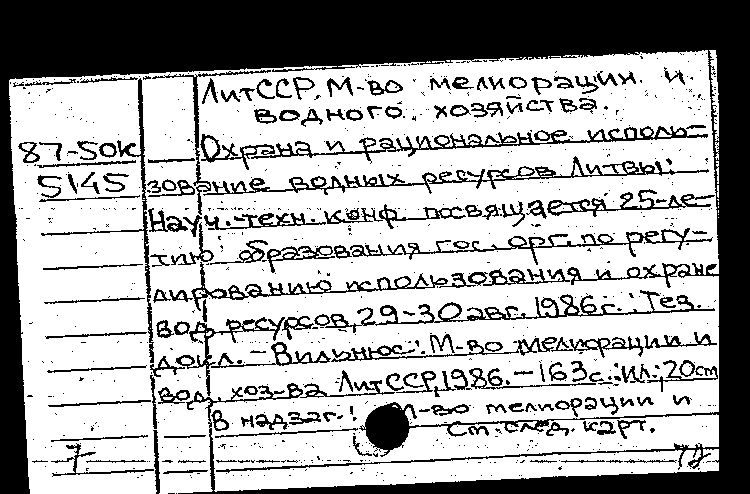 ЛитССР. М-во мелиорации и
водного хозяйства.
87-50к Охрана и рациональное исполь-
5145 зование водных ресурсов Литвы:
Науч.-техн. конф. посвящается 25-ле-
тию образования гос. орг. по регу-
лированию использования и охране
вод. ресурсов, 29-30 авг. 1986 г.: Тез.
докл. - Вильнюс: М-во мелиорации и
вод. хоз-ва ЛитССР, 1986. - 163 с.: ил.; 20 см
В надзаг.: М-во мелиорации и
См. след. карт.
7